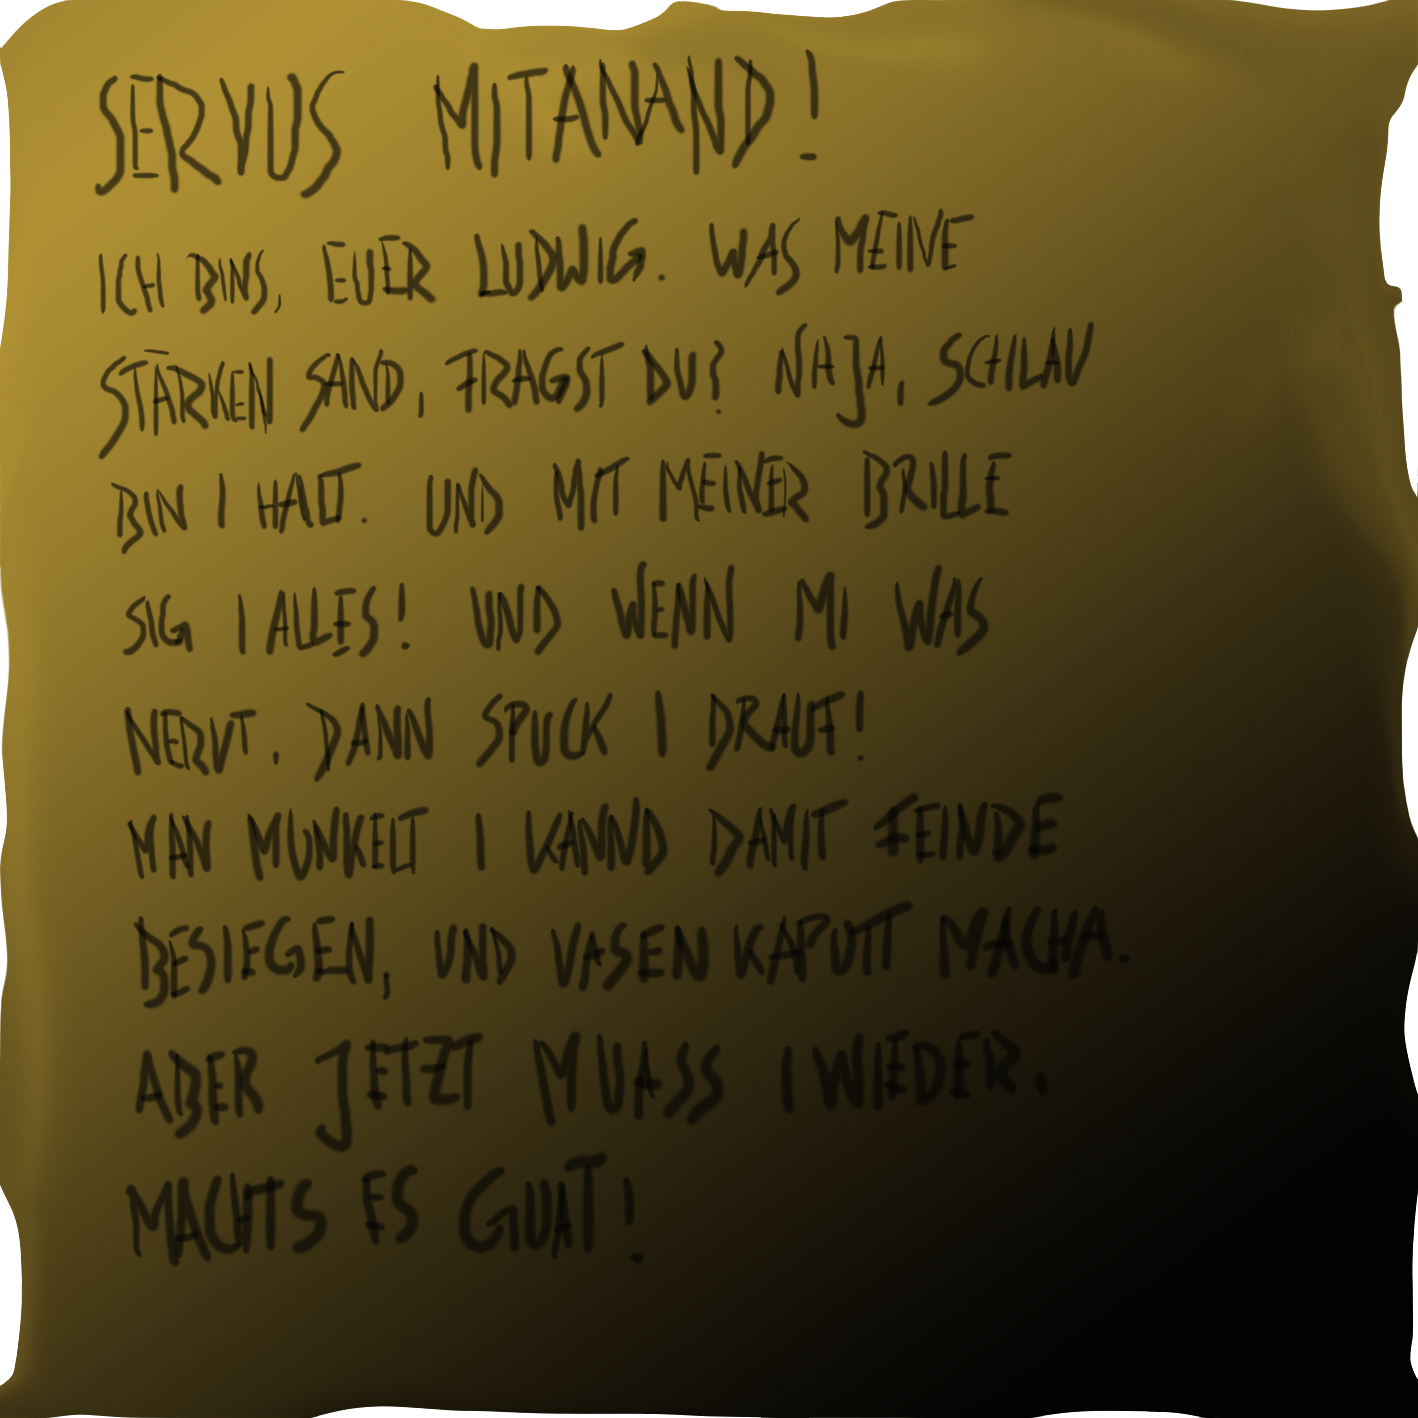 SERVUS MITANAND!
ICH BINS, EUER LUDWIG. WAS MEINE
STÄRKEN SAND, FRAGST DU? NAJA, SCHLAU
BIN I HALT. UND MIT MEINER BRILLE
SIG I ALLES! UND WENN MI WAS
NERVT. DANN SPUCK I DRAUF!
MAN MUNKELT I KANND DAMIT FEINDE
BESIEGEN, UND VASEN KAPUTT MACHA.
ABER JETZT MUASS I WIEDER.
MACHTS ES GUAT!